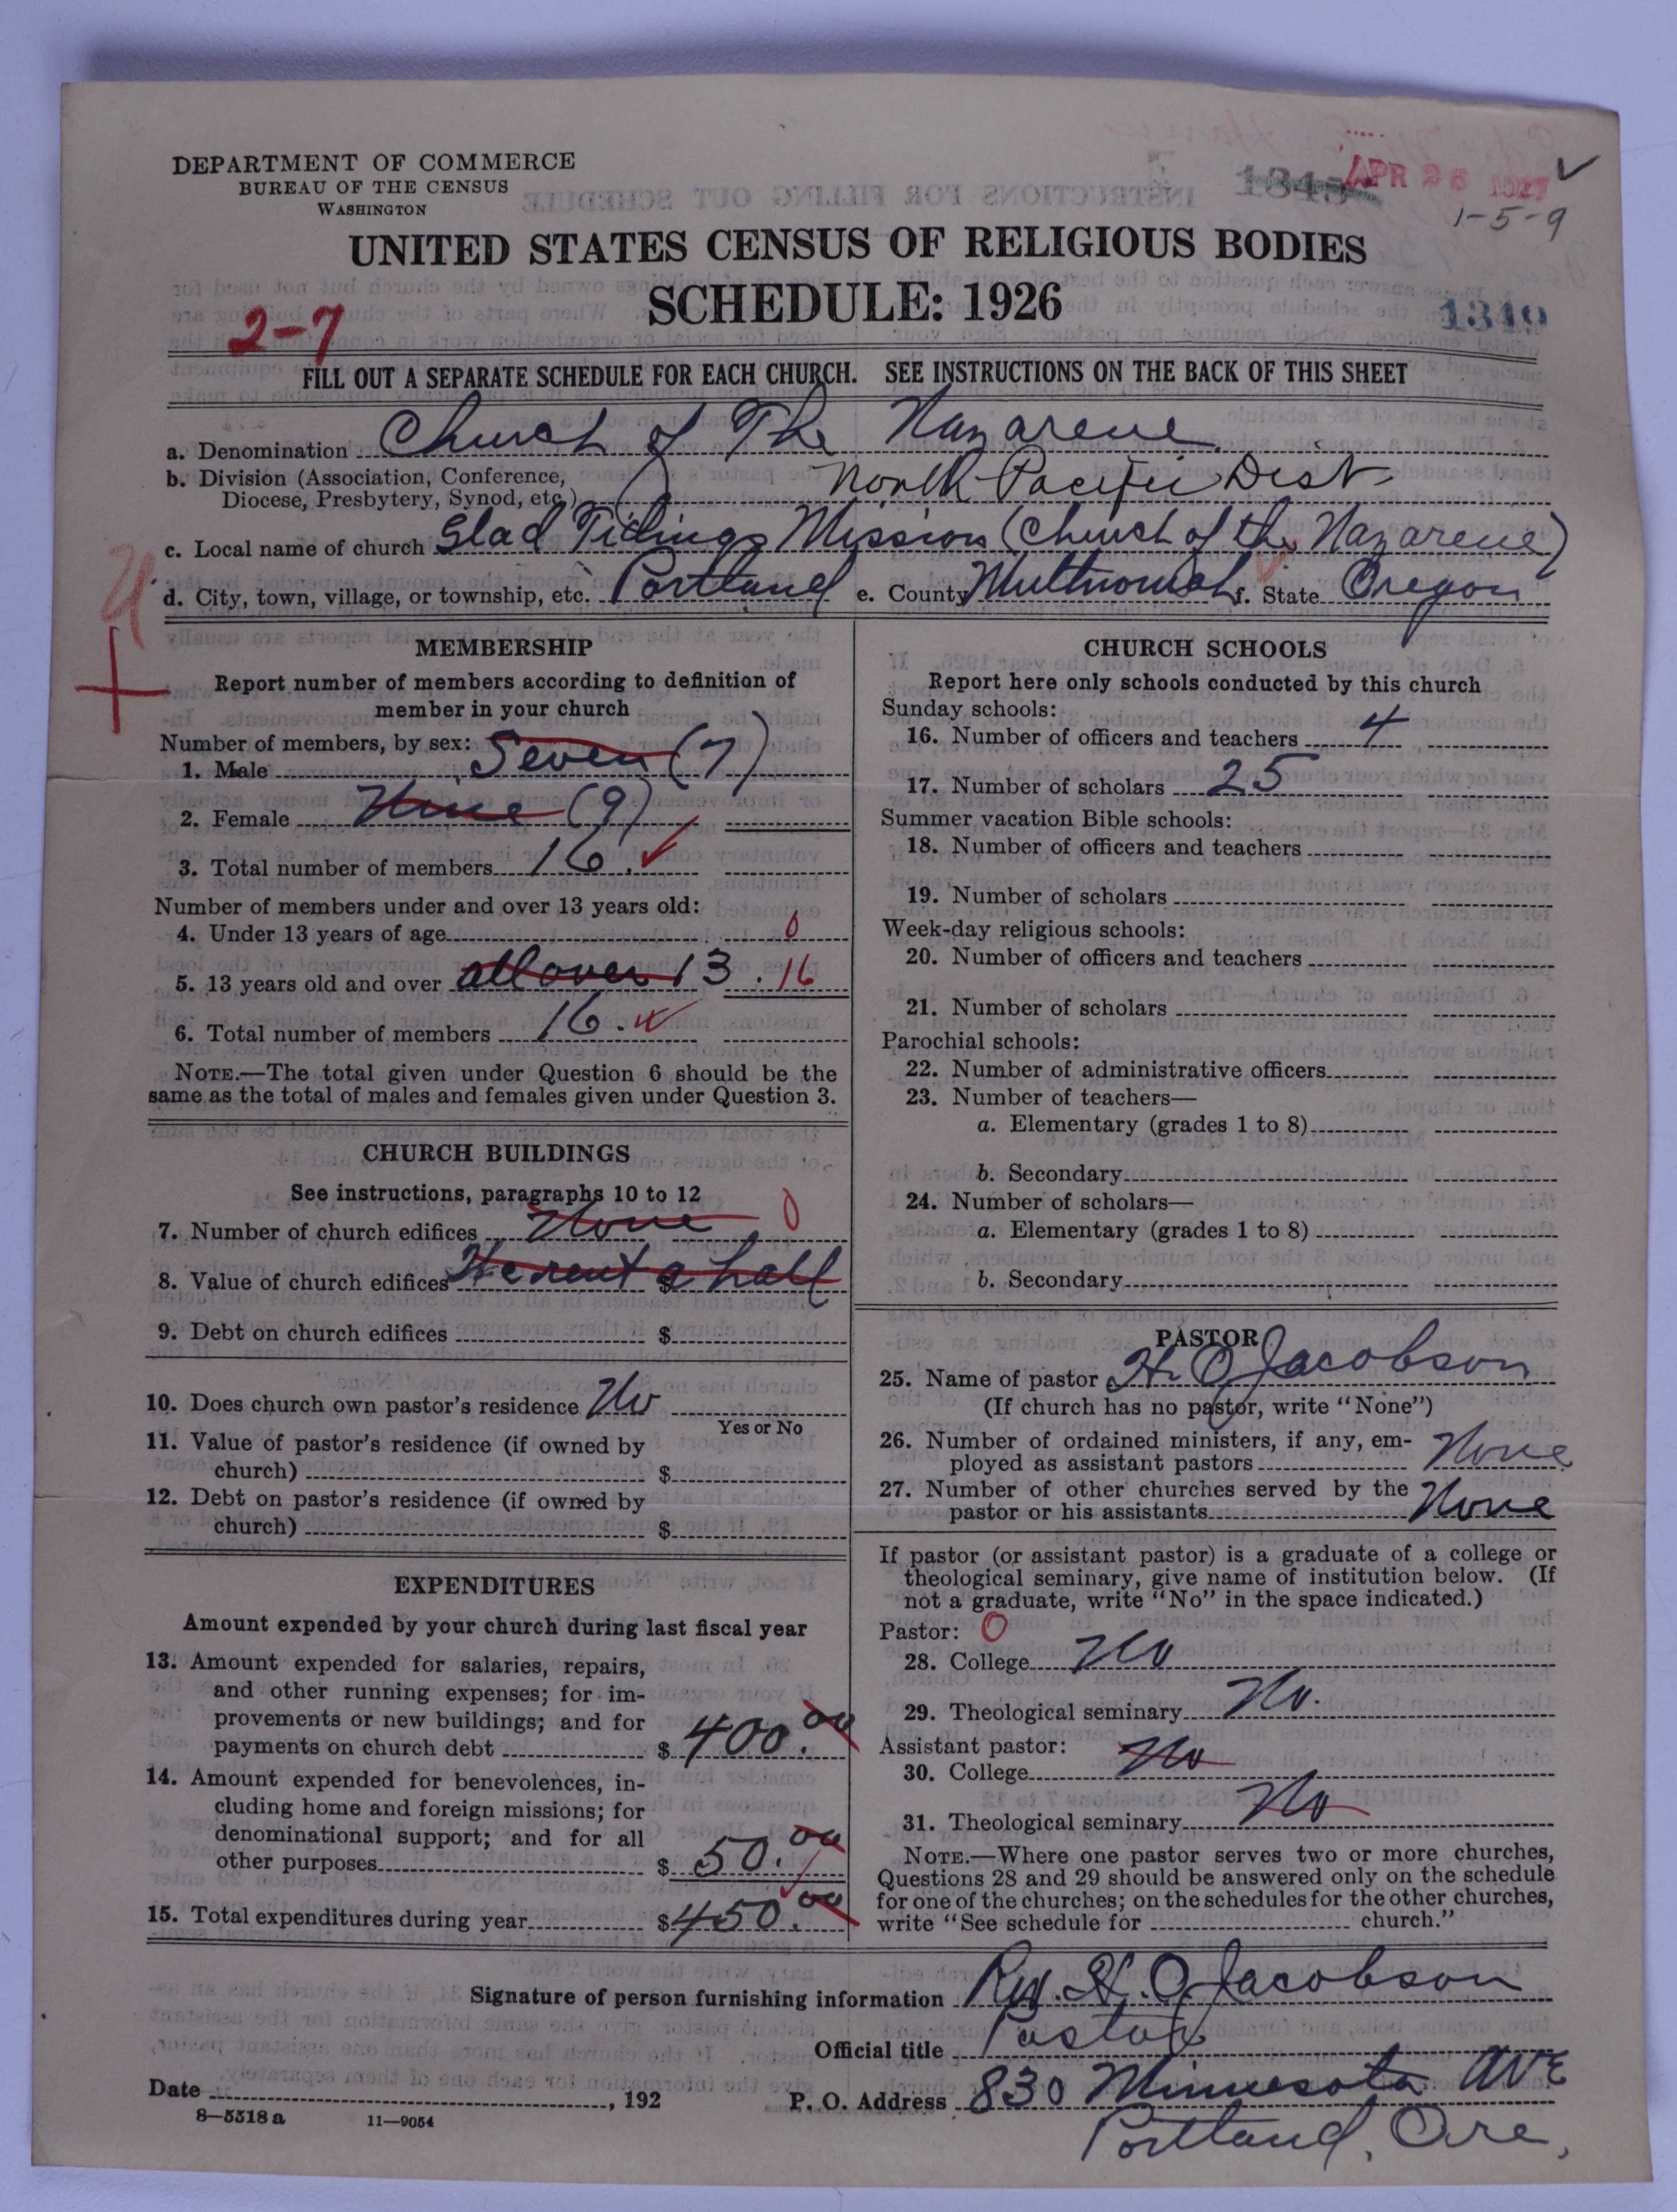 DEPARTMENT OF COMMERCE
BUREAU OF THE CENSUS
WASHINGTON
APR 26 1927
1-5-9
UNITED STATES CENSUS OF RELIGIOUS BODIES
SCHEDULE: 1926
2-7
1349
FILL OUT A SEPARATE SCHEDULE FOR EACH CHURCH. SEE INSTRUCTIONS ON THE BACK OF THIS SHEET
a. Denomination Church of The Nazarene
b. Division (Association, Conference,
Diocese, Presbytery, Synod, etc.) North Pacific Dist
c. Local name of church Glad Tidings Mission (Church of the Nazarene)
d. City, town, village, or township, etc. Portland e. County Multnomah f. State Oregon
MEMBERSHIP
Report number of members according to definition of
member in your church
Number of members, by sex:
1. Male Seven (7)
2. Female Nine (9)
3. Total number of members 16.
Number of members under and over 13 years old:
4. Under 13 years of age 0
5. 13 years old and over all over 13. 16
6. Total number of members 16.
NOTE.—The total given under Question 6 should be the
same as the total of males and females given under Question 3.
CHURCH BUILDINGS
See instructions, paragraphs 10 to 12
7. Number of church edifices None 0
8. Value of church edifices We rent a hall $
9. Debt on church edifices $
10. Does church own pastor's residence No
Yes or No
11. Value of pastor's residence (if owned by
church) $
12. Debt on pastor's residence (if owned by
church) $
EXPENDITURES
Amount expended by your church during last fiscal year
13. Amount expended for salaries, repairs,
and other running expenses; for im-
provements or new buildings; and for
payments on church debt $ 400.00
14. Amount expended for benevolences, in-
cluding home and foreign missions; for
denominational support; and for all
other purposes $ 50.00
15. Total expenditures during year $ 450.00
CHURCH SCHOOLS
Report here only schools conducted by this church
Sunday schools:
16. Number of officers and teachers 4
17. Number of scholars 25
Summer vacation Bible schools:
18. Number of officers and teachers
19. Number of scholars
Week-day religious schools:
20. Number of officers and teachers
21. Number of scholars
Parochial schools:
22. Number of administrative officers
23. Number of teachers—
a. Elementary (grades 1 to 8)
b. Secondary
24. Number of scholars—
a. Elementary (grades 1 to 8)
b. Secondary
PASTOR
25. Name of pastor H. O. Jacobson
(If church has no pastor, write "None")
26. Number of ordained ministers, if any, em-
ployed as assistant pastors None
27. Number of other churches served by the
pastor or his assistants None
If pastor (or assistant pastor) is a graduate of a college or
theological seminary, give name of institution below. (If
not a graduate, write "No" in the space indicated.)
Pastor: 0
28. College No
29. Theological seminary No.
Assistant pastor:
30. College No
31. Theological seminary No
NOTE.—Where one pastor serves two or more churches,
Questions 28 and 29 should be answered only on the schedule
for one of the churches; on the schedules for the other churches,
write "See schedule for church."
Signature of person furnishing information Rev. H. O. Jacobson
Official title Pastor
Date , 192
P. O. Address 830 Minnesota Ave
Portland, Ore,
8—5518a 11—9054